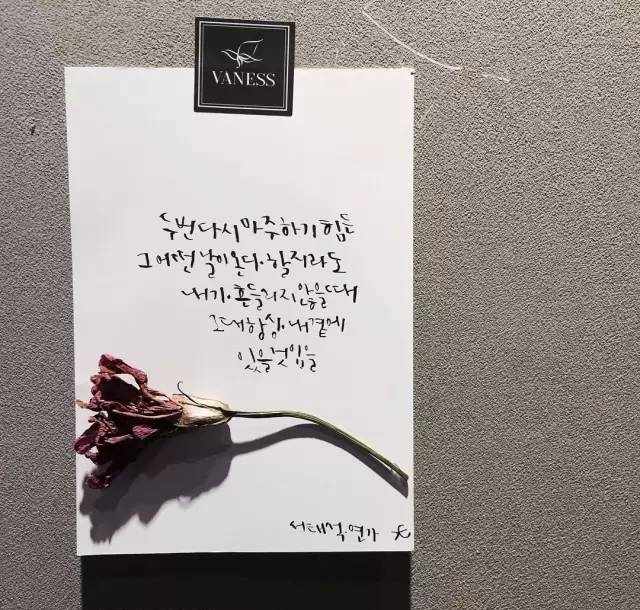 VANESS
두번다시 마주하기 힘든
그 어떤 날이 온다. 할지라도
내가. 흔들리지 않을 때
그대 항상. 내 곁에
있을 것임을
서태석. 연가